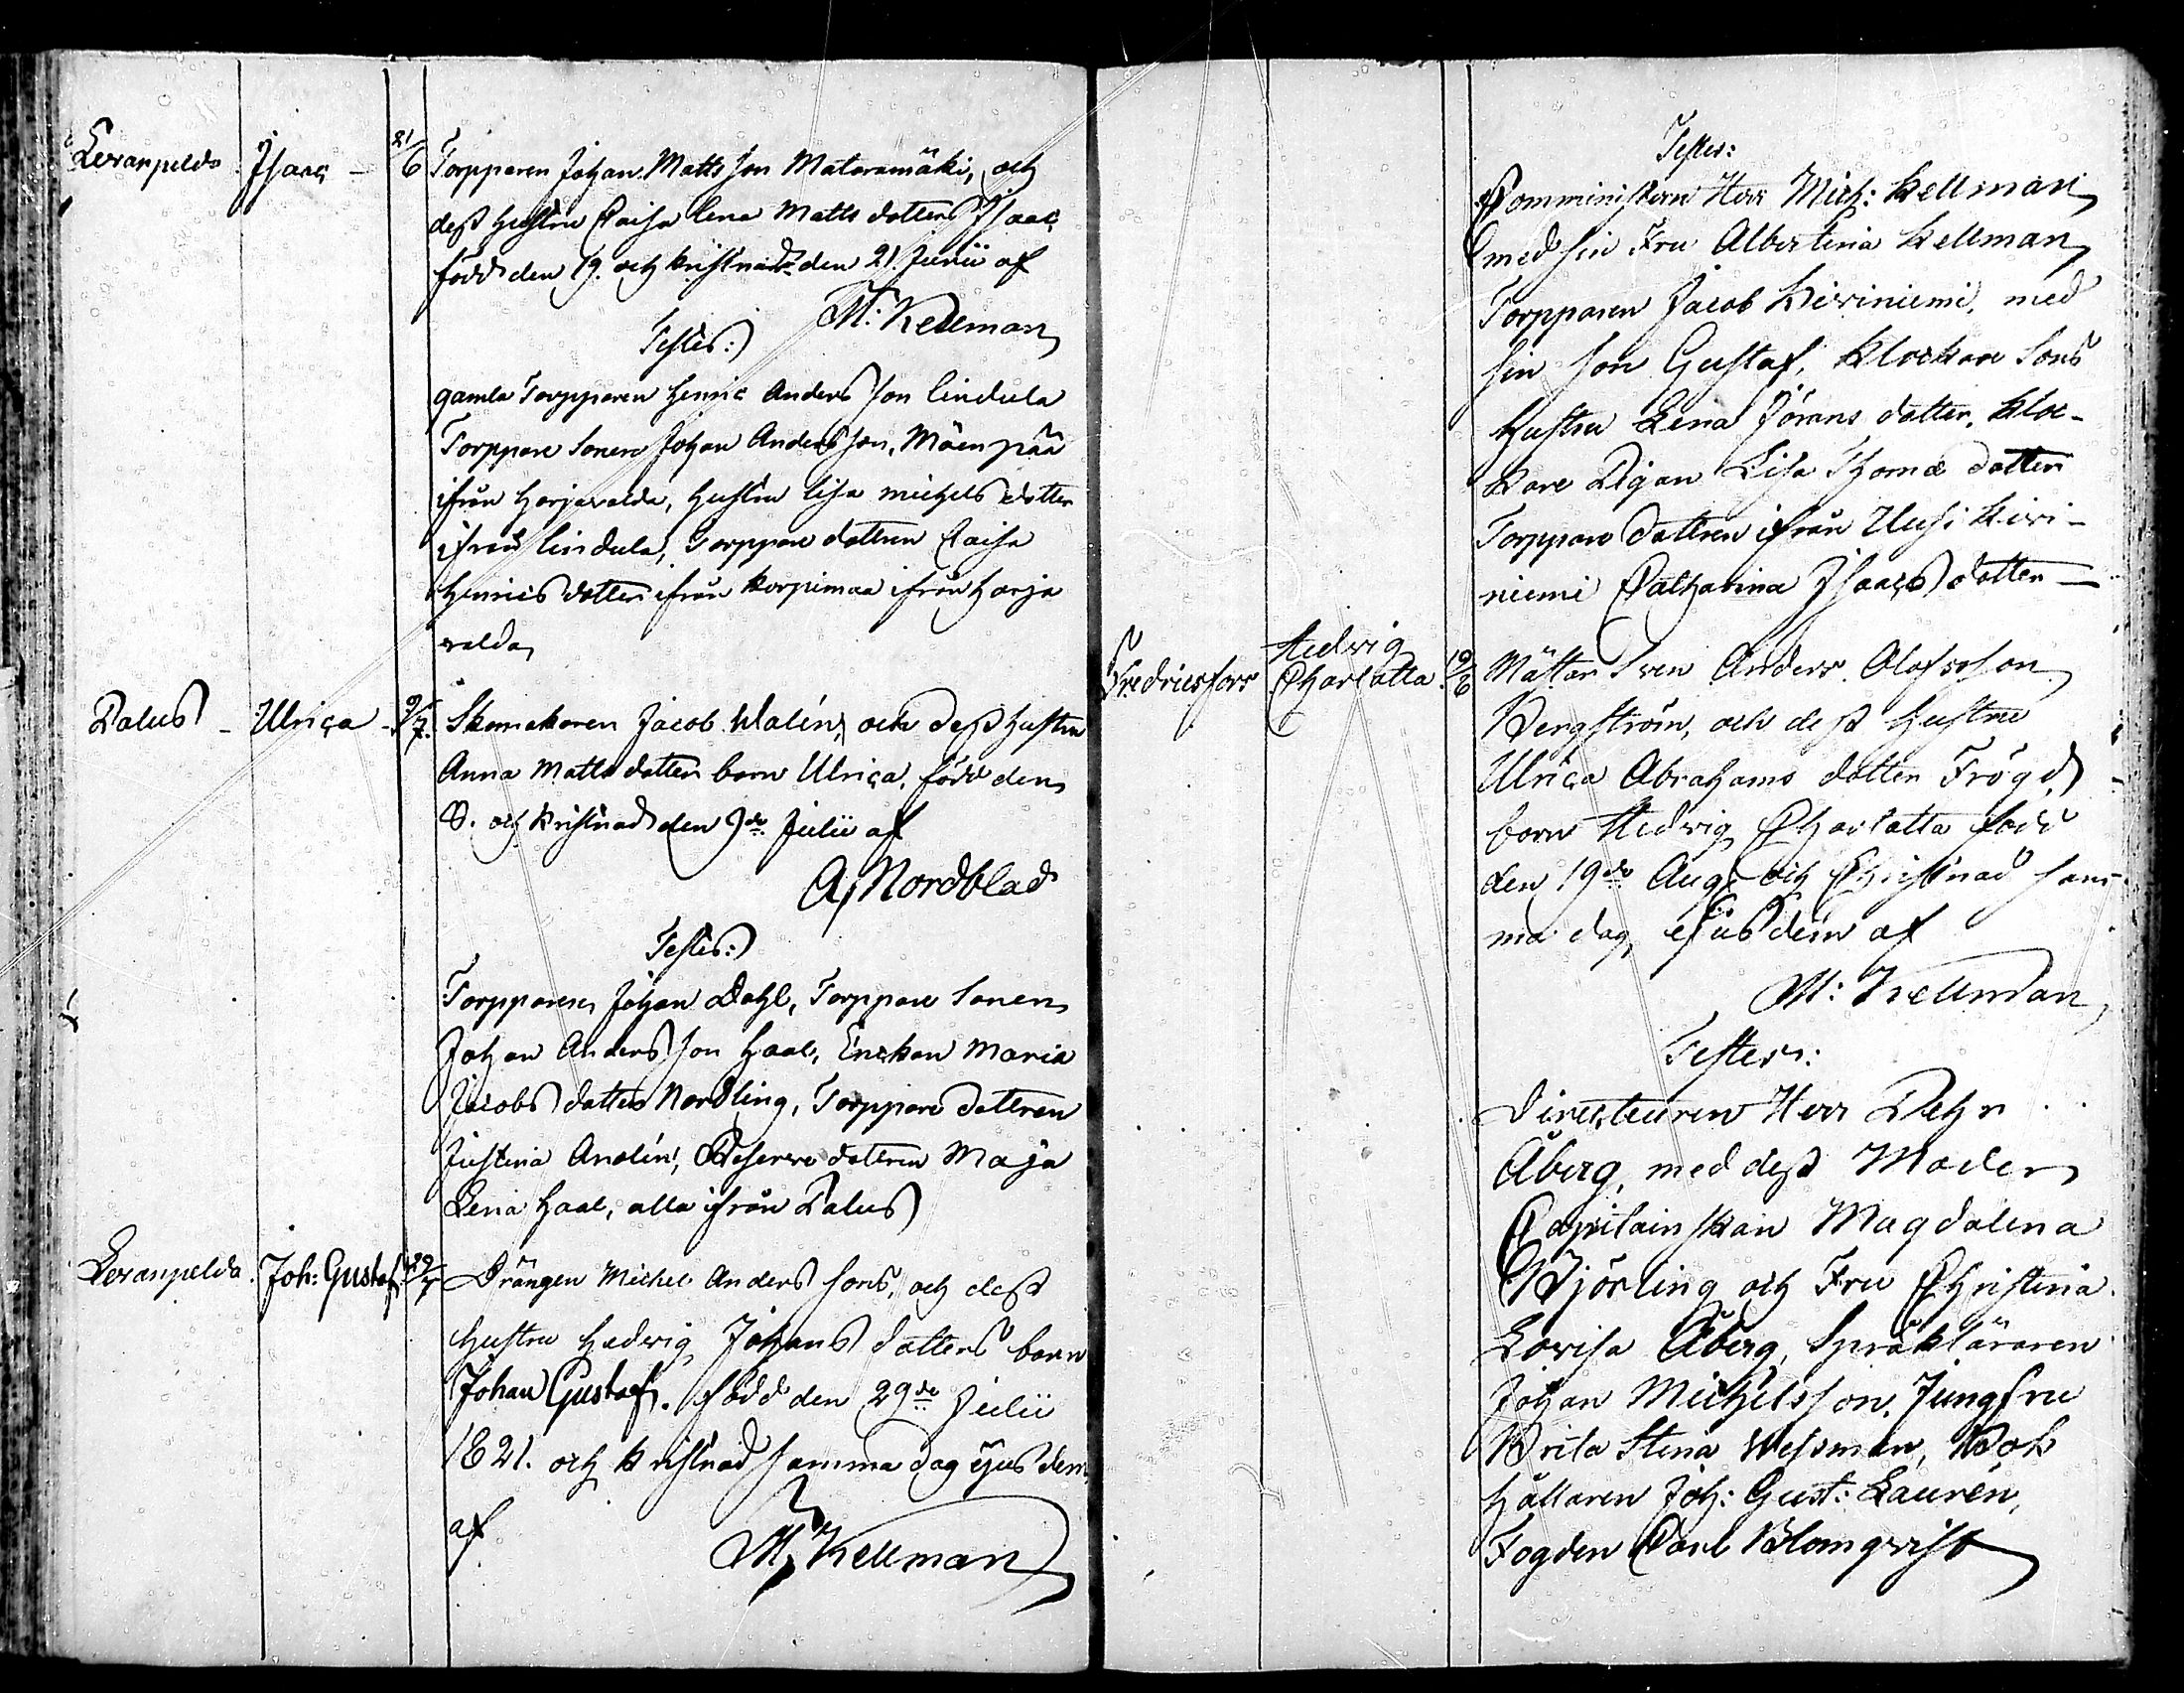 Levanpelds Isaac - 21/6 Torpparen Johan Matts son Mataramäki, och
dess hustru Caisa Lena Matts dotters Isaac
född den 19. och kristnad den 21. Junii af
M: Kellman
Testes:
gamla Torpparen Henric Anders son Lindula
Torppare Sonen Johan Anders son, Mäenpää
ifrån Harjavalda, hustru Lisa Michels dotter
ifrån Lindula, Torppare dottren Caisa
Henrics dotter ifrån Korpimaa ifrån Harja
valda
Palus - Ulrica - 9/7. Skomakaren Jacob Walén, och dess hustru
Anna Matts dotters barn Ulrica, född den
8. och kristnad den 9de Julii af
A, Nordblad
Testes:
Torpparen Johan Dahl, Torppare Sonen
Johan Anders son Haal, Enckan Maria
Jacobs dotter Nordling, Torppare dottren
Justina Anolin, Reserve dottren Maja
Lena Haal, alla ifrån Palus
Levanpelda. Joh: Gustaf 29/7 Drängen Michel Anders sons, och dess
hustru Hedvig Johans dotters barn
Johan Gustaf. född den 29de Julii
1821. och kristnad samma dag ejusdem
af
M, Kellman
Testes:
Comministern Herr Mich: Kellman
med sin Fru Albertina Kellman
Torpparen Jacob Kiviniemi, med
sin son Gustaf, Klockare Sons
hustru Lena Jörans dotter, Kloc-
kare Pigan Lisa Thomæ dotter
Torppare dottren ifrån Uusi Kivi-
niemi Catharina Isaacs dotter —
Fredricsfors Hedvig Charlotta 19/8 Mästar Sven Anders Olofsson
Bergström, och dess hustru
Ulrica Abrahams dotter Frögd,
barn Hedvig Charlotta född
den 19de Aug: och Christnad sam-
ma dag, ejusdem af
M: Kellman
Testes:
Directeuren Herr Pehr
Åberg, med dess Moder
Capitainskan Magdalena
Björling och Fru Christina
Lovisa Åberg, Språkläraren
Johan Michelsson, Jungfru
Brita Stina Wessman, Bok
hållaren Joh: Gust: Laurén,
Fogden Carl Blomqvist